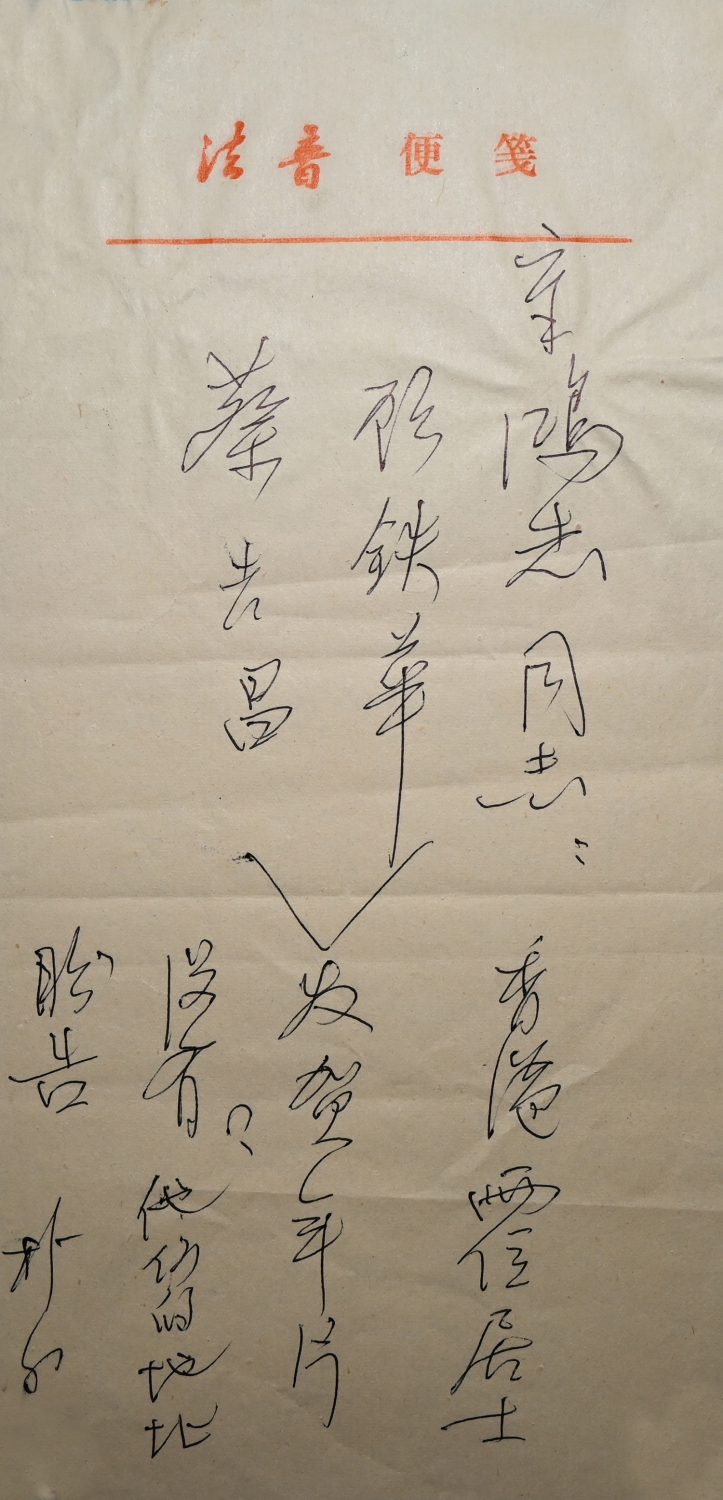 法音 便笺
鸿志同志：
香港两位居士
顾铁華
蔡吉昌
发贺年片
没有？他们的地址
盼告
朴初